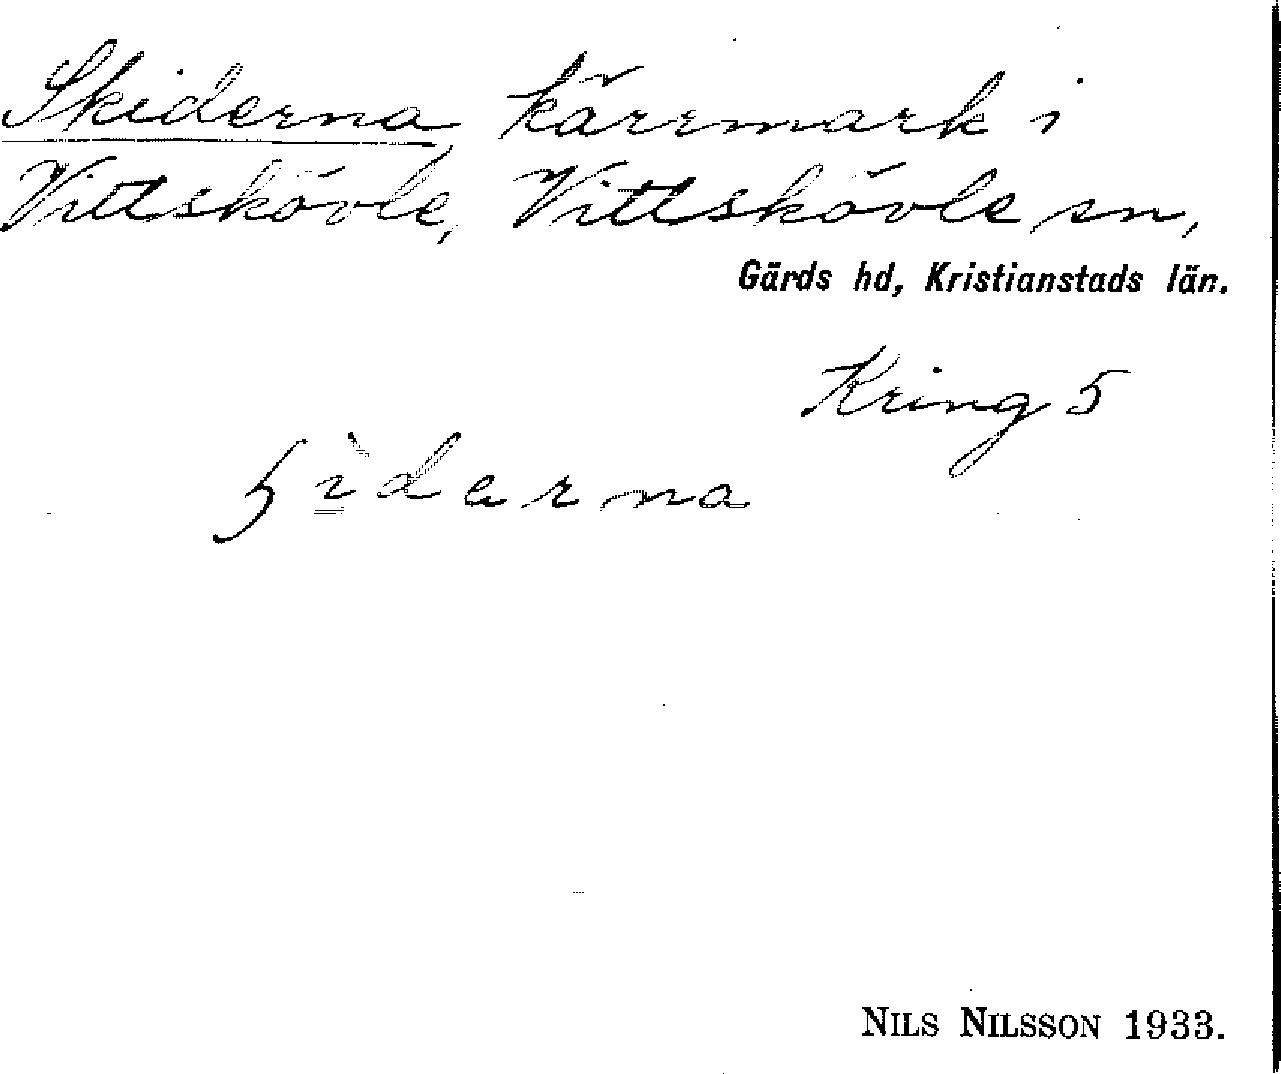 Skiderna, kärrmark i
Vittskövle, Vittskövle sn,
Gärds hd, Kristianstads län.
Kring 5
ʃìdarna
NILS NILSSON 1933.